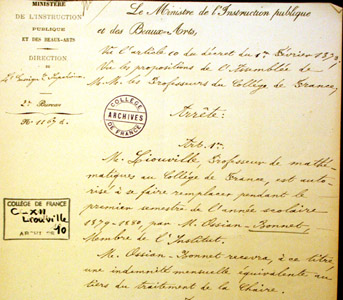 MINISTÈRE
DE L'INSTRUCTION
PUBLIQUE
ET DES BEAUX-ARTS,
DIRECTION
de l'Enseig.t Supérieur
2e Bureau
No 1107 d.
Le Ministre de l'Instruction publique
et des Beaux-Arts,
Vu l'article 10 du décret du 1er Février 1873,
Vu les propositions de l'Assemblée de
M.M. les Professeurs du Collège de France,
COLLÈGE
ARCHIVES
DE FRANCE
Arrête:
Art. 1er.
M. Liouville, Professeur de mathé-
matiques au Collège de France, est auto-
risé à se faire remplacer pendant le
premier semestre de l'année scolaire
1879-1880, par M. Ossian-Bonnet,
Membre de l'Institut.
M. Ossian-Bonnet recevra, à ce titre
une indemnité mensuelle équivalente au
tiers du traitement de la Chaire.
COLLÈGE DE FRANCE
C-XII
Liouville
10